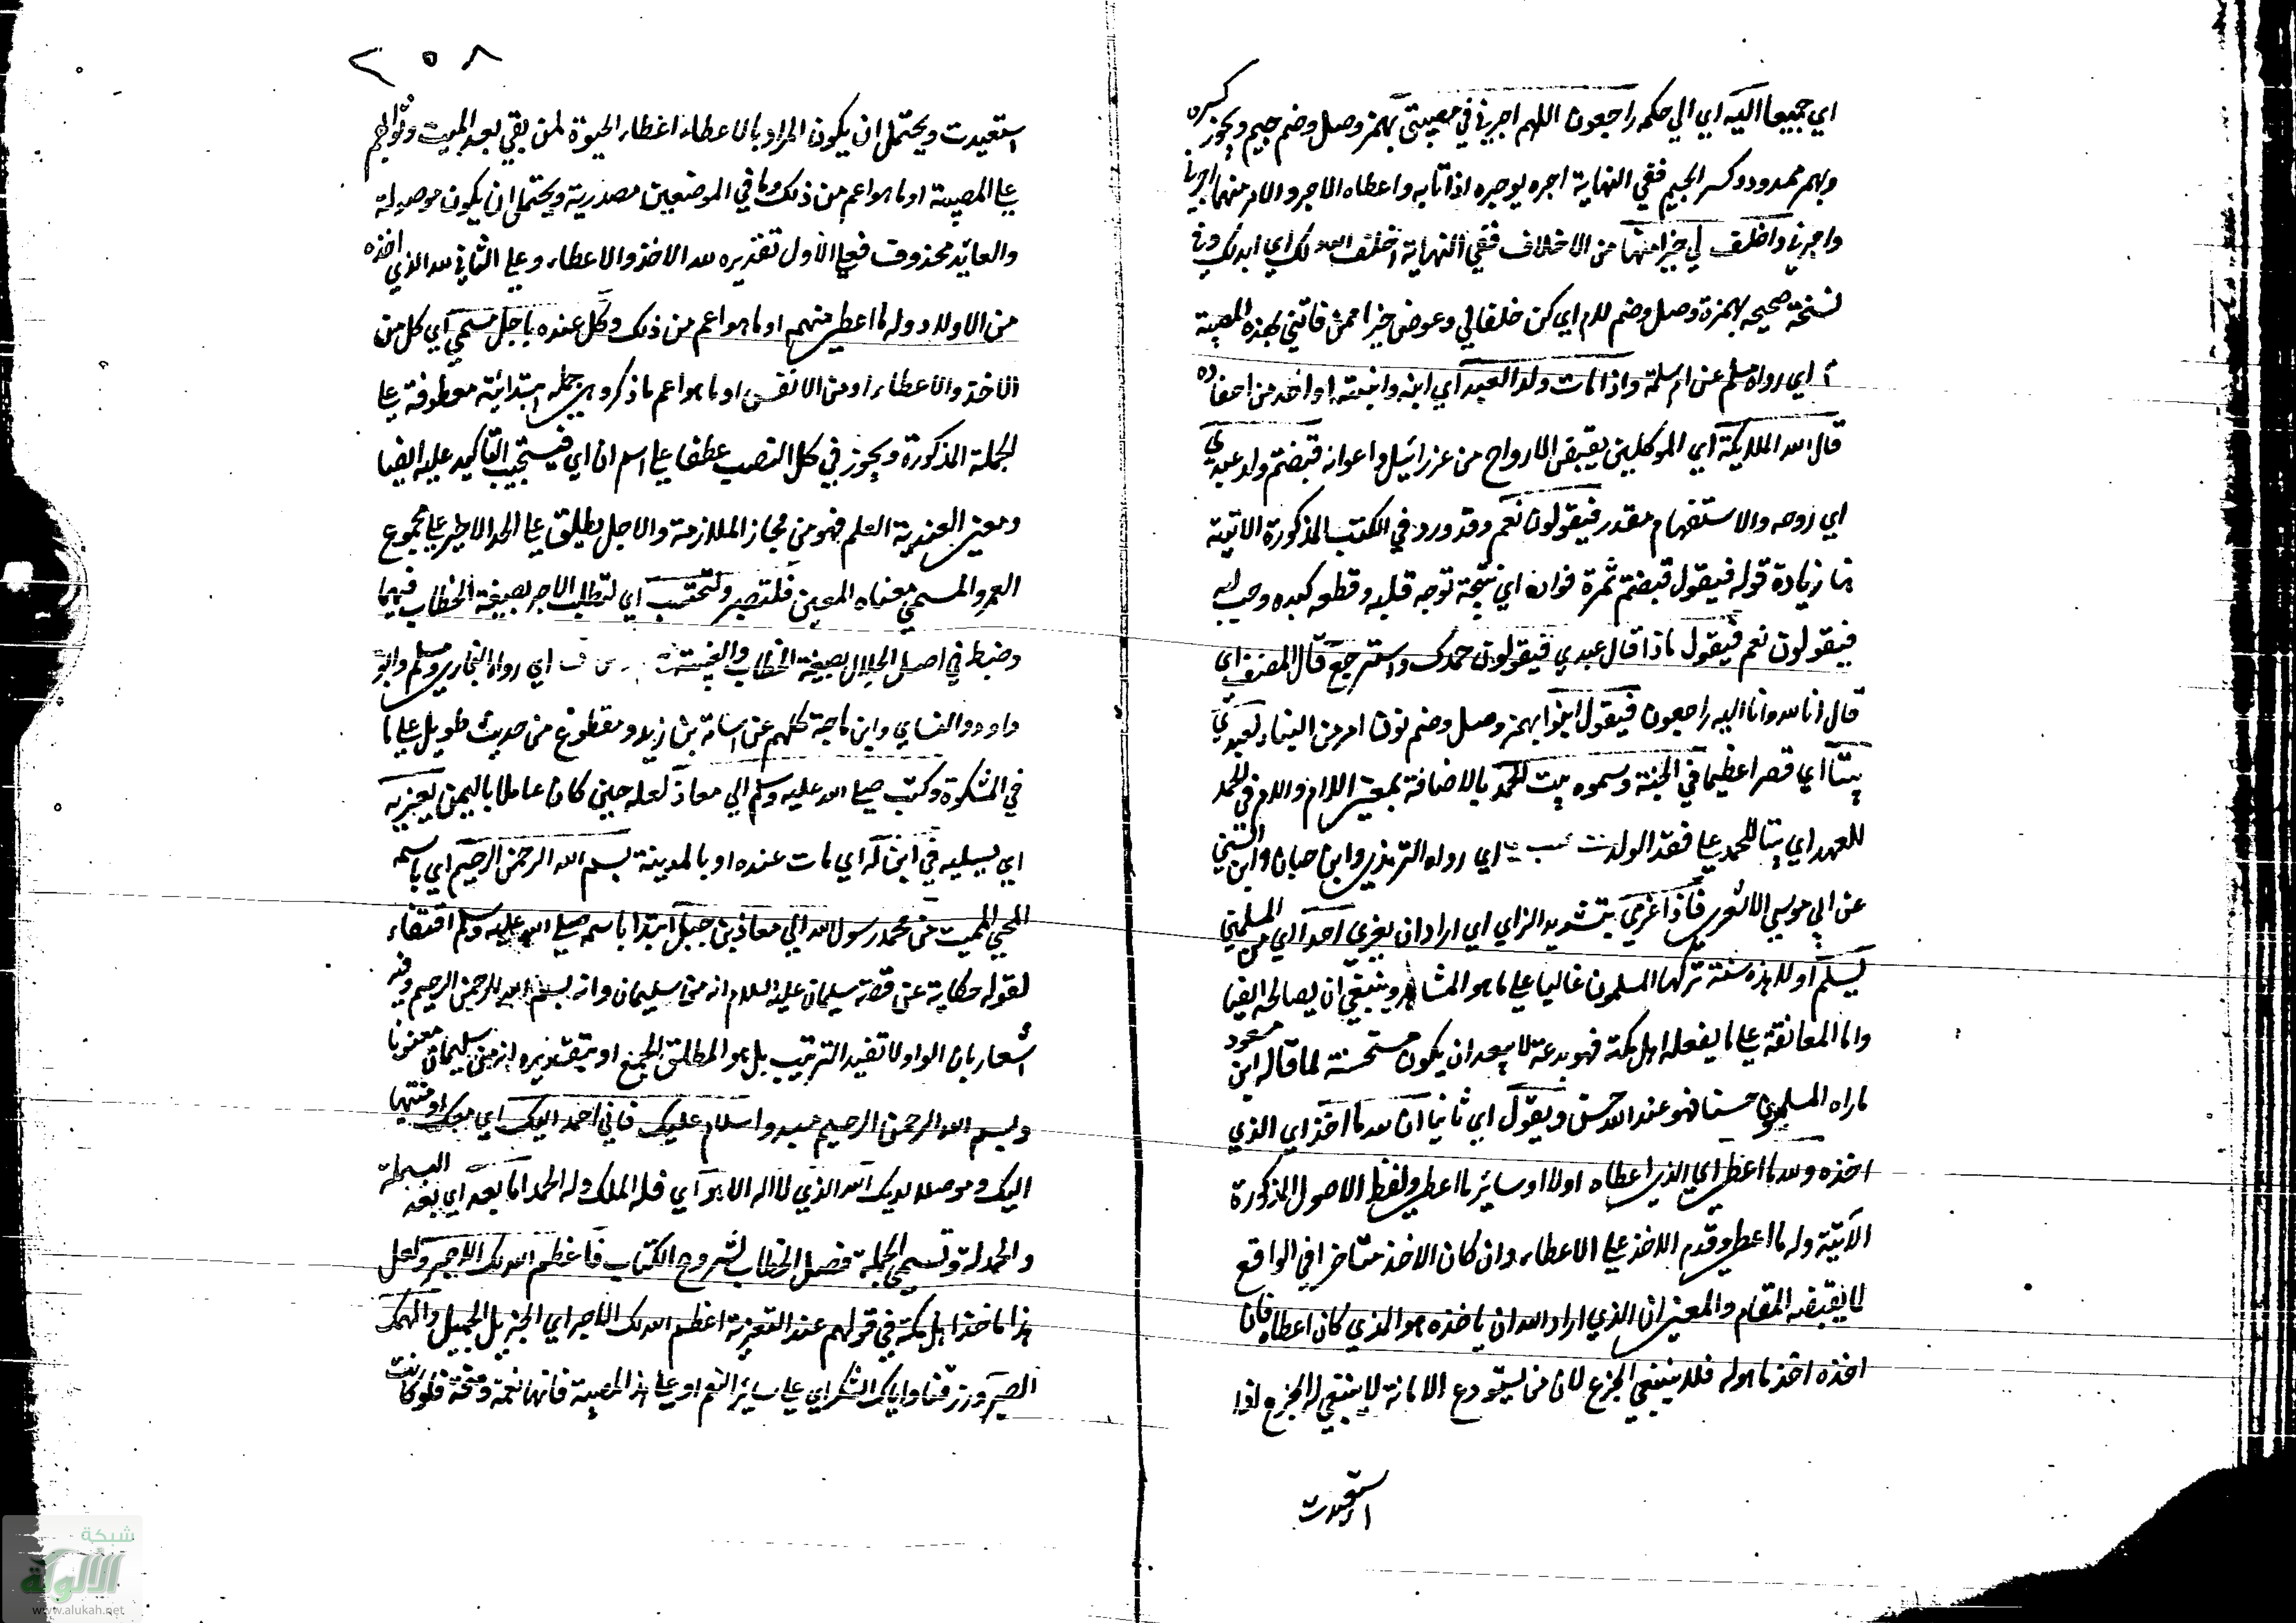 اي جميعا اليه اي الي حكمه راجعون اللهم اجرني في مصيبتي بهمز وصل وضم جيم ويجوز كسره
وبهمز ممدود وكسر الجيم ففي النهاية اجره يوجره اذا اثابه واعطاه الاجر والامر منهما اجرني
واجرني واخلف لي خيرا منها من الاخلاف ففي النهاية اخلف الله لك اي ابدلك وفي
نسخة صحيحه بهمزة وصل وضم لام اي كن خلفا لي وعوض خيرا ممن فاتني بهذه المصيبة
م اي رواه مسلم عن ام سلمة واذا مات ولد العبد اي ابنه وابنته او احد من احفاده
قال الله لملايكته اي الموكلين بقبض الارواح من عزرائيل واعوانه قبضتم ولد عبدي
اي روحه والاستفهام مقدر فيقولون نعم وقد ورد في الكتب المذكورة الاتية
هنا زيادة قوله فيقول قبضتم ثمرة فواده اي نتيجة توجه قلبه وقطعه كبده وحب لبه
فيقولون نعم فيقول ماذا قال عبدي فيقولون حمدك واسترجع قال المصنف اي
قال انا لله وانا اليه راجعون فيقول ابنوا بهمز وصل وضم نون امر من البناء لعبدي
بيتا اي قصرا عظيما في الجنة وسموه بيت الحمد بالاضافة بمعني اللام واللام في الحمد
للعهد اي بيتا للحمد علي فقد الولد ت حب ي اي رواه الترمذي وابن حبان وابن السني
عن ابي موسي الاشعري فاذا عزي بتشديد الزاي اي اراد ان يعزي احد الي من المسلمين
يسلم اولا وهذه سنة تركها المسلمون غالبا علي ما هو المشاهد وينبغي ان يصالحه ايضا
واما المعانقة علي ما يفعله اهل مكة فهو بدعة لا يبعد ان يكون مستحسنة لما قاله ابن مسعود
ما راه المسلمون حسنا فهو عند الله حسن ويقول اي ثانيا ان لله ما اخذ اي الذي
اخذه ولله ما اعطي اي الذي اعطاه اولا او سائر ما اعطي ولفظ الاصول المذكورة
الاتية وله ما اعطي وقدم الاخذ علي الاعطاء وان كان الاخذ متاخرا في الواقع
لما يقتضيه المقام والمعني ان الذي اراد الله ان ياخذه هو الذي كان اعطاه فان
اخذه اخذ ما هو له فلا ينبغي الجزع لان من يستودع الامانة لا ينبغي له الجزع اذا
استعيدت
٢٥٨
استعيدت ويحتمل ان يكون المراد بالاعطاء اعطاء الحيوة لمن بقي بعد الميت وثوابهم
علي المصيبة او ما هو اعم من ذلك وما في الموضعين مصدرية ويحتمل ان يكون موصولة
والعائد محذوف فعلي الاول تقديره لله الاخذ والاعطاء وعلي الثاني لله الذي اخذه
من الاولاد وله ما اعطي منهم او ما هو اعم من ذلك وكل عنده باجل مسمي اي كل من
الاخذ والاعطاء او من الانفس او ما هو اعم ما ذكر وهي جملة ابتدائية معطوفة علي
الجملة المذكورة ويجوز في كل النصب عطفا علي اسم ان اي فيستحب التاكيد عليه ايضا
ومعني العندية العلم فهو من مجاز الملازمة والاجل يطلق علي الحد الاخير وعلي مجموع
العمر والمسمي معناه المعين فلتصبر ولتحتسب اي لتطلب الاجر بصيغة الخطاب فيهما
وضبط في اصل الجلال بصيغة الخطاب والغيبة خ م د س ق اي رواه البخاري ومسلم وابو
داود والنساي وابن ماجة كلهم عن اسامة بن زيد ومقطوع من حديث طويل علي ما
في المشكوة وكتب صلي الله عليه وسلم الي معاذ لعله حين كان عاملا باليمن يعزيه
اي يسليه في ابن له اي مات عنده او بالمدينة بسم الله الرحمن الرحيم اي باسمه
المحيي المميت من محمد رسول الله الي معاذ بن جبل ابتدا باسمه صلي الله عليه وسلم اقتفاء
لقوله حكاية عن قصة سليمان عليه السلام انه من سليمان وانه بسم الله الرحمن الرحيم وفيه
اشعار بان الواو لا تفيد الترتيب بل هو المطلق الجمع او بتقديره انه من سليمان معنونا
وبسم الله الرحمن الرحيم مبدوا سلام عليك فاني احمد اليك اي معك او منتهيا
اليك وموصلا لديك الله الذي لا اله الا هو اي فله الملك وله الحمد اما بعد اي بعد البسملة
والحمدلة وتسمي الجملة فصل الخطاب لشروح الكتاب فاعظم الله لك الاجر ولعل
هذا ماخذ اهل مكة في قولهم عند التعزية اعظم الله لك الاجر اي الجزيل الجميل والهمك
الصبر ورزقنا واياك الشكر اي علي سائر النعم او علي هذا المصيبة فانها نعمة ومنحة فلو كانت
شبكة
الألوكة
www.alukah.net